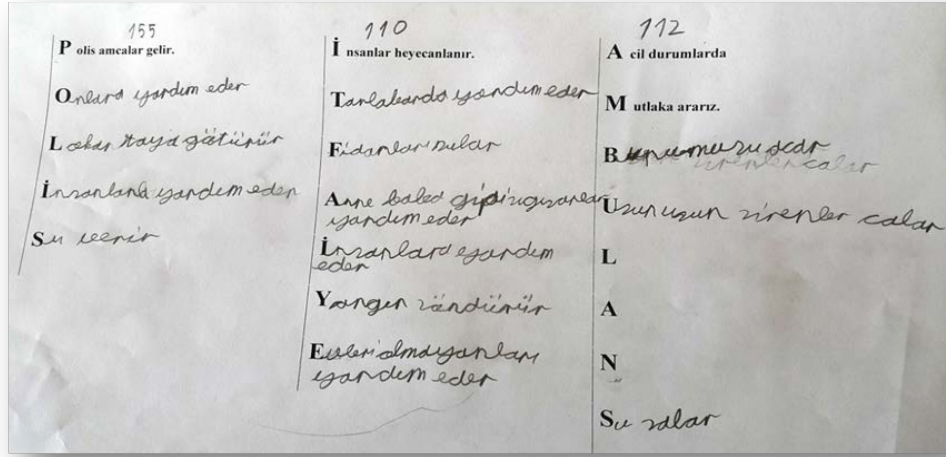 155
Polis amcalar gelir.
Onlara yardım eder
İnsanlara yardım eder
Su verir
110
İnsanlar heyecanlanır.
yardım eder
Fidanları sular
Anne baba gibi
yardım eder
İnsanlara yardım
eder
Yangın söndürür
Evleri olmayanları
yardım eder
112
Acil durumlarda
Mutlaka ararız.
B
Uzun uzun sirenler calar
L
A
N
Su salar